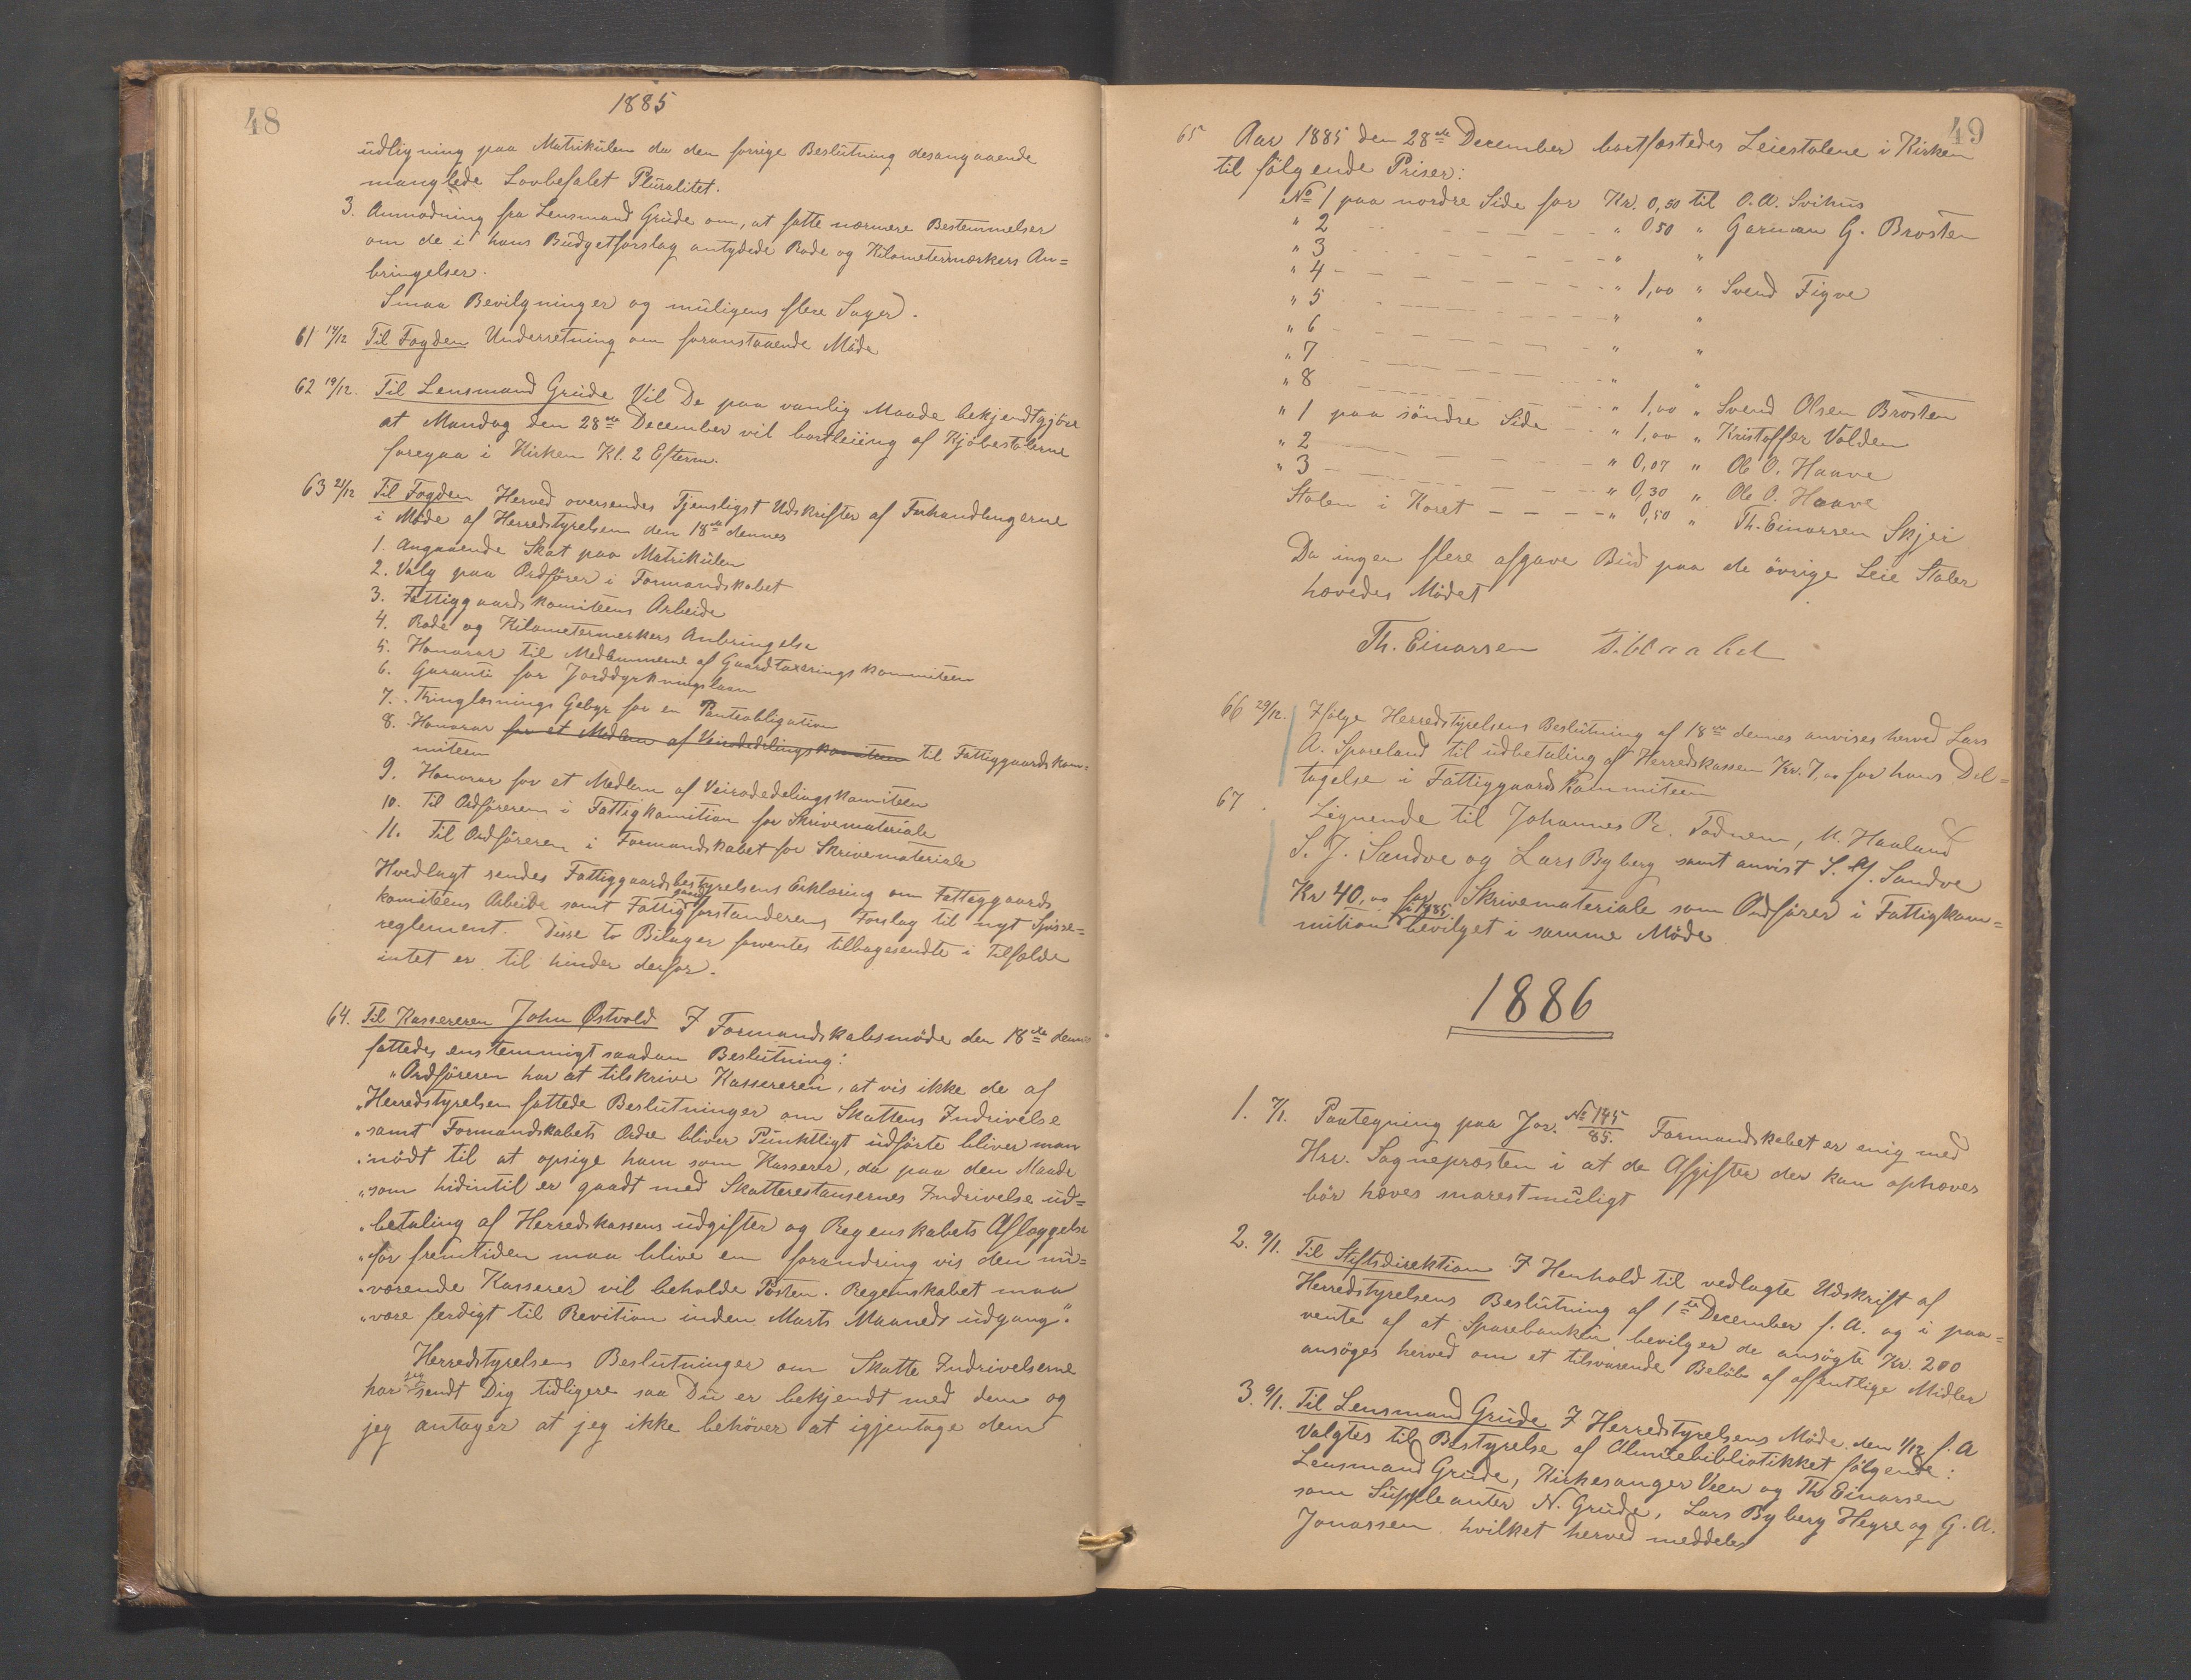 48
1885
udligning paa Matrikülen da den forrige Beslütning desangaaende
manglede Lovbefalet Plüralitet.
3. Anmodning fra Lensmand Grüde om, at fatte nærmere Bestemmelser
om de i hans Büdgetforslag antydede Rode og Kilometermærkers An=
bringelser.
Smaa Bevilgninger og müligens flere Sager.
61 19/12 Til Fogden Underretning om foranstaaende Möde
62 19/12. Til Lensmand Grüde Vil De paa vanlig Maade bekjendtgjöre
at Mandag den 28de December vil bortleiing af Kjöbestolerne
foregaa i Kirken Kl. 2 Efterm.
63 21/12 Til Fogden Herved oversendes Tjensligst Udskrifter af Forhandlingerne
i Möde af Herredstyrelsen den 18de dennes
1. Angaaende Skat paa Matrikülen
2. Valg paa Ordförer i Formandskabet
3. Fattiggaardskomiteens Arbeide
4. Rode og Kilometermerkers Anbringelse
5. Honorar til Medlemmerne af Gaardtaxeringskommiteen
6. Garanti for Jorddyrkningslaan
7. Thinglæsnings Gebyr for en Panteobligation
8. Honorar for et Medlem af Veirodedelingskomiteen til Fattiggaardskom=
miteen
9. Honorar for et Medlem af Veirodedelingskomiteen
10. Til Ordföreren i Fattigkomition for Skrivemateriale
11. Til Ordföreren i Formandskabet for Skrivemateriale
Hvedlagt sendes Fattiggaardsbestyrelsens Erklæring om Fattiggaards
komiteens Arbeide samt Fattiggaardforstanderens Forslag til nyt Spise=
reglement. Disse to Bilager forventes tilbagesendte i Tilfælde
intet er til hinder derfor.
64. Til Kassereren John Østvold I Formandskabsmöde den 18de dennes
fattedes enstemmigt saadan Beslütning:
"Ordföreren har at tilskrive Kassereren, at vis ikke de af
"Herredstyrelsen fattede Beslütninger om Skattens Indrivelse
"samt Formandskabets Ordre bliver Pünktligt üdförte bliver man
"nödt til at opsige ham som Kasserer, da paa den Maade
"som hidintil er gaadt med Skatterestansernes Indrivelse üd=
"betaling af Herredskassens üdgifter og Regenskabets Aflæggelse
"for fremtiden maa blive en forandring vis den nü=
"værende Kasserer vil beholde Posten. Regenskabet maa
"være ferdigt til Revition inden Marts Maaneds üdgang".
Herredstyrelsens Beslütninger om Skatte Indrivelserne
har jeg sendt Dig tidligere saa Dü er bekjendt med dem og
jeg antager at jeg ikke behöver at igjentage dem
49
65 Aar 1885 den 28de December bortfæstedes Leiestolene i Kirken
til fölgende Priser:
No 1 paa nordre Side for Kr. 0,50 til O. A. Svihus
" 2 - - - - - - " 0,50 " Garman G. Brosten
" 3 - - - - - - " "
" 4 - - - - - - " 1,00 " Svend Figve
" 5 - - - - - - " "
" 6 - - - - - - " "
" 7 - - - - - - " "
" 8 - - - - - - " 1,00 " Svend Olsen Brosten
" 1 paa söndre Side - - " 1,00 " Kristoffer Volden
" 2 - - - - - - " 0,07 " Ole O. Haave
" 3 - - - - - - " 0,30 " Ole O. Haave
Stolen i Koret - - - - " 0,50 " Th. Einarsen Skjei
Da ingen flere afgave Büd paa de övrige Leie Stoler
hævedes Mödet
Th. Einarsen
66 29/12. Ifölge Herredstyrelsens Beslütning af 18de dennes anvises herved Lars
A. Spareland til üdbetaling af Herredskassen Kr. 7,00 for hans Del=
tagelse i Fattiggaardskommiteen
67 Lignende til Johannes R. Todnem, M. Haaland
S. J. Sandve og Lars Byberg samt anvist S. J. Sandve
Kr 40,00 for Skrivemateriale som Ordförer i Fattigkom=
mition for 1885 bevilget i samme Möde
1886
1. 7/1. Paategning paa Jor. No 145/85. Formandskabet er enig med
Hrr. Sognepræsten i at de Afgifter der kan ophæves
bör hæves snarestmüligt
2. 9/1. Til Stiftsdirektion I Henhold til vedlagte Udskrift af
Herredstyrelsens Beslütning af 1ste December f. A. og i paa=
vente af at Sparebanken bevilger de ansögte Kr. 200
ansöges herved om et tilsvarende Belöb af offentlige Midler
3. 9/1. Til Lensmand Grüde I Herredstyrelsens Möde den 1/12 f. A
Valgtes til Bestyrelse af Almüebibliotikket fölgende:
Lensmand Grüde, Kirkesanger Veen og Th Einarsen
som Süppleanter N. Grüde, Lars Byberg Hegre og G. A.
Jonassen hvilket herved meddeles